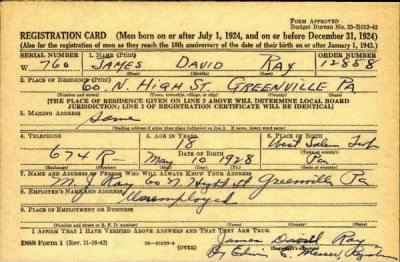 FORM APPROVED
Budget Bureau No. 33-R013-42
REGISTRATION CARD (Men born on or after July 1, 1924, and on or before December 31, 1924)
(Also for the registration of men as they reach the 18th anniversary of the date of their birth on or after January 1, 1943.)
SERIAL NUMBER 1. NAME (Print) ORDER NUMBER
W 760 JAMES DAVID RAY 12858
2. PLACE OF RESIDENCE (Print)
60 N. HIGH ST. GREENVILLE PA
(Number and street) (Town, township, village, or city) (County) (State)
[THE PLACE OF RESIDENCE GIVEN ON LINE 2 ABOVE WILL DETERMINE LOCAL BOARD
JURISDICTION; LINE 2 OF REGISTRATION CERTIFICATE WILL BE IDENTICAL]
3. MAILING ADDRESS
Same
[Mailing address if other than place indicated on line 2. If same, insert word same]
4. TELEPHONE 5. AGE IN YEARS 6. PLACE OF BIRTH
18 West Salem Twp
674 R DATE OF BIRTH
May 10 1928 Pa
(Exchange) (Number) (Mo.) (Day) (Yr.) (State or country)
7. NAME AND ADDRESS OF PERSON WHO WILL ALWAYS KNOW YOUR ADDRESS
Ray 60 N Greenville Pa
8. EMPLOYER'S NAME AND ADDRESS
Unemployed
9. PLACE OF EMPLOYMENT OR BUSINESS
(Number and street or R. F. D. number) (Town) (County) (State)
I AFFIRM THAT I HAVE VERIFIED ABOVE ANSWERS AND THAT THEY ARE TRUE.
DSS Form 1 (Rev. 11-16-42) James David Ray
By Edwin C.